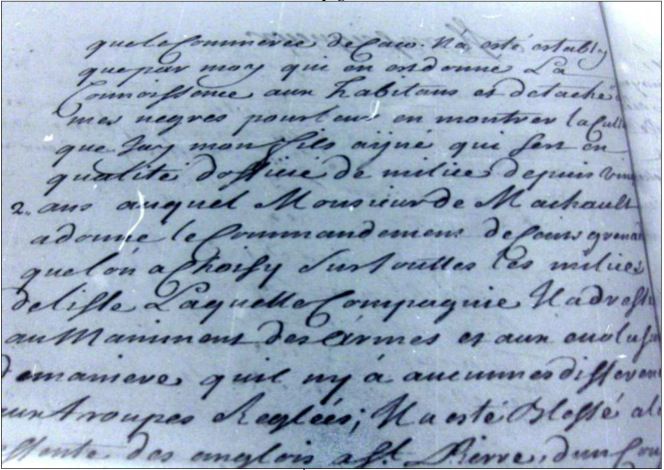 que le Commerce de Caco. Na esté estably
que par moy qui en ay donné La
Connoissence aux habitans et detaché
mes negres pour leur en montrer la Cult
que Jay mon fils ayné qui sert en
qualité dofficié de milice depuis vin
2. ans auquel Monsieur de Machault
a donné le Commandement de Cens grena
que lon a Choisy Sur touttes les milices
de lisle Laquelle Compagnie Il a dressé
au Maniment des Armes et aux evolusi
demaniere quil ny á aucunnes differen
aux troupes Reglées; Il a esté Blessé a l
des anglois a St. Pierre, dun Cou